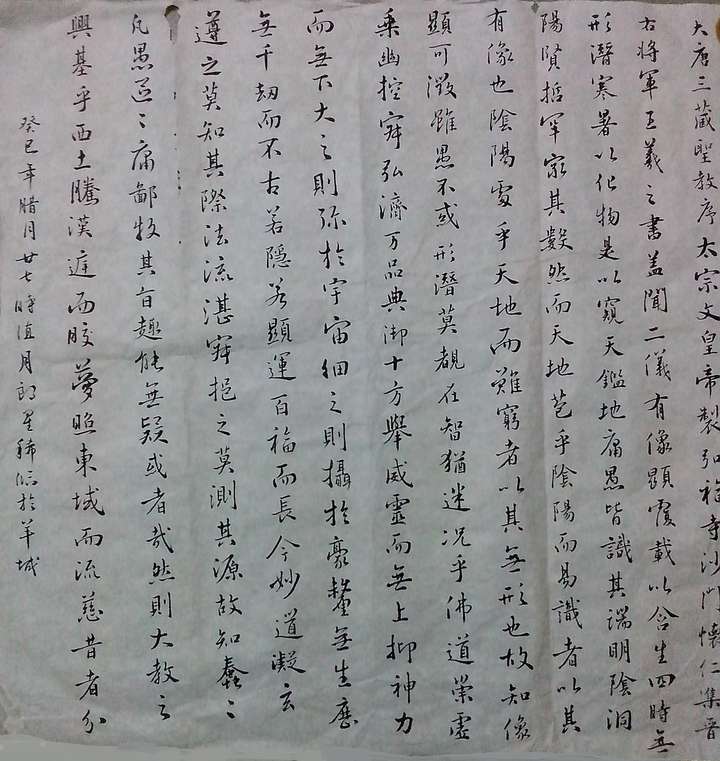 大唐三藏聖教序太宗文皇帝製弘福寺沙門懷仁集晉
右將軍王羲之書蓋聞二儀有像顯覆載以含生四時無
形潛寒暑以化物是以窺天鑑地庸愚皆識其端明陰洞
陽賢哲罕窮其數然而天地苞乎陰陽而易識者以其
有像也陰陽處乎天地而難窮者以其無形也故知像
顯可徵雖愚不惑形潛莫覩在智猶迷況乎佛道崇虛
乘幽控寂弘濟万品典御十方舉威靈而無上抑神力
而無下大之則弥於宇宙細之則攝於豪釐無生歷
無千劫而不古若隱若顯運百福而長今妙道凝玄
遵之莫知其際法流湛寂挹之莫測其源故知蠢〻
凡愚區〻庸鄙投其旨趣能無疑或者哉然則大教之
興基乎西土騰漢庭而皎夢照東域而流慈昔者分
癸巳年腊月廿七時值月郎星稀臨於羊城